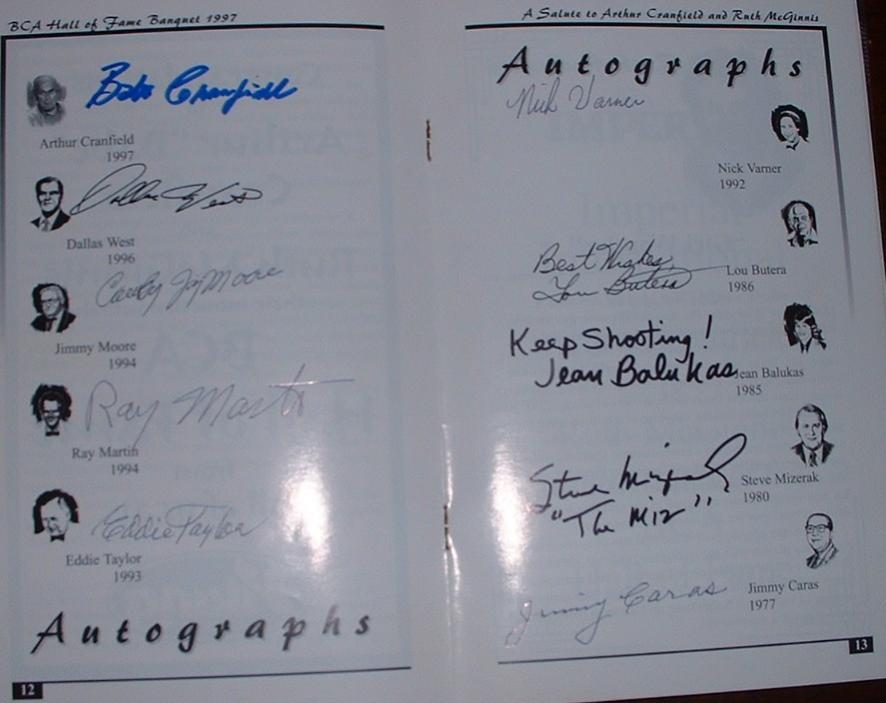 BCA Hall of Fame Banquet 1997
Babe Cranfield
Arthur Cranfield
1997
Dallas West
Dallas West
1996
Cowboy Jimmy Moore
Jimmy Moore
1994
Ray Martin
Ray Martin
1994
Eddie Taylor
Eddie Taylor
1993
Autographs
12
A Salute to Arthur Cranfield and Ruth McGinnis
Autographs
Nick Varner
Nick Varner
1992
Best Wishes,
Lou Butera
Lou Butera
1986
Keep Shooting!
Jean Balukas
Jean Balukas
1985
Steve Mizerak
"The Miz"
Steve Mizerak
1980
Jimmy Caras
Jimmy Caras
1977
13